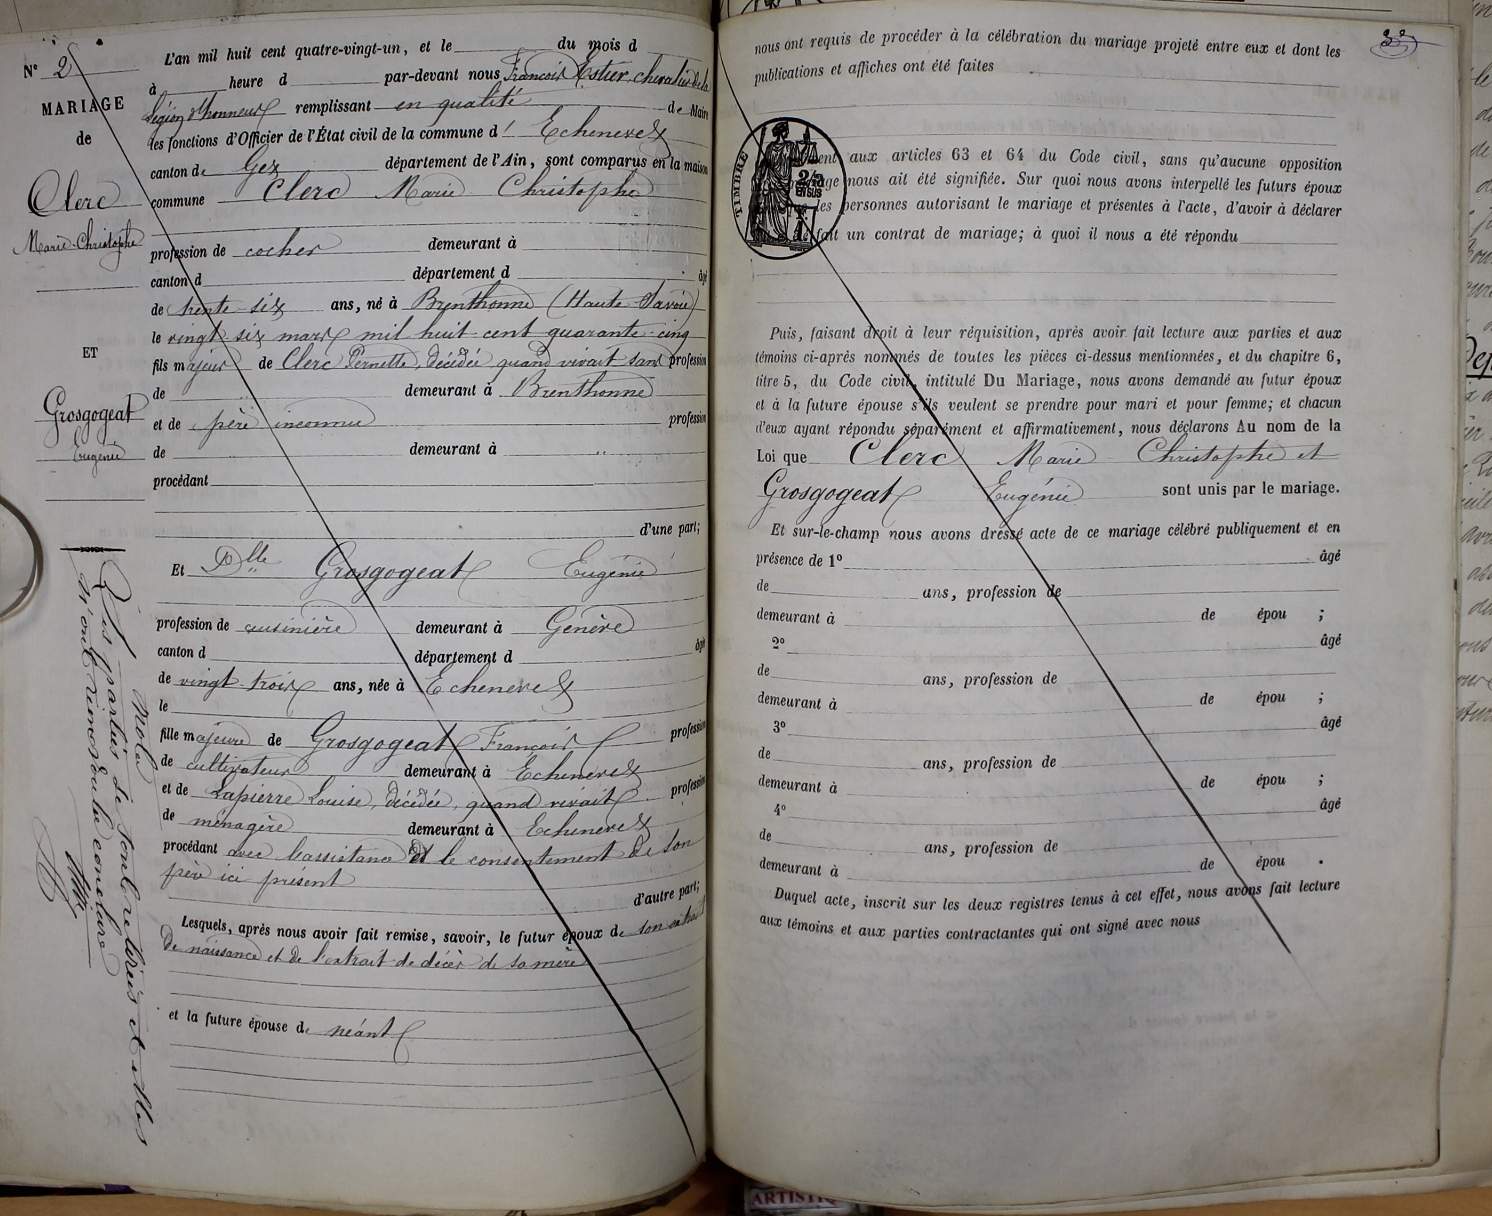 N° 2
MARIAGE
de
Clerc
Marie-Christophe
ET
Grosgogeat
Eugénie
Nota
Les parties se sont retirées et elles
n'ont rien voulu conclure
L'an mil huit cent quatre-vingt-un, et le du mois d
à heure d par-devant nous François Estier, chevalier de la
Légion d'honneur remplissant en qualité de Maire
les fonctions d'Officier de l'État civil de la commune d' Echenevex
canton de Gex département de l'Ain, sont comparus en la maison
commune Clerc Marie Christophe
profession de cocher demeurant à
canton d département d âgé
de trente-six ans, né à Brenthonne (Haute-Savoie)
le vingt six mars mil huit cent quarante-cinq
fils majeur de Clerc Pernette, décédée quand vivait sans profession
de demeurant à Brenthonne
et de père inconnu profession
de demeurant à
procédant
d'une part;
Et Dlle Grosgogeat Eugénie
profession de cuisinière demeurant à Genève
canton d département d âgée
de vingt-trois ans, née à Echenevex
le
fille majeure de Grosgogeat François profession
de cultivateur demeurant à Echenevex
et de Lapierre Louise, décédée, quand vivait profession
de ménagère demeurant à Echenevex
procédant avec l'assistance et le consentement de son
père ici présent
d'autre part;
Lesquels, après nous avoir fait remise, savoir, le futur époux de son extrait
de naissance et de l'extrait de décès de sa mère
et la future épouse de néant
nous ont requis de procéder à la célébration du mariage projeté entre eux et dont les
publications et affiches ont été faites
TIMBRE
aux articles 63 et 64 du Code civil, sans qu'aucune opposition
nous ait été signifiée. Sur quoi nous avons interpellé les futurs époux
les personnes autorisant le mariage et présentes à l'acte, d'avoir à déclarer
fait un contrat de mariage; à quoi il nous a été répondu
Puis, faisant droit à leur réquisition, après avoir fait lecture aux parties et aux
témoins ci-après nommés de toutes les pièces ci-dessus mentionnées, et du chapitre 6,
titre 5, du Code civil, intitulé Du Mariage, nous avons demandé au futur époux
et à la future épouse s'ils veulent se prendre pour mari et pour femme; et chacun
d'eux ayant répondu séparément et affirmativement, nous déclarons Au nom de la
Loi que Clerc Marie Christophe et
Grosgogeat Eugénie sont unis par le mariage.
Et sur-le-champ nous avons dressé acte de ce mariage célébré publiquement et en
présence de 1° âgé
de ans, profession de
demeurant à de épou ;
2° âgé
de ans, profession de
demeurant à de épou ;
3° âgé
de ans, profession de
demeurant à de épou ;
4° âgé
de ans, profession de
demeurant à de épou .
Duquel acte, inscrit sur les deux registres tenus à cet effet, nous avons fait lecture
aux témoins et aux parties contractantes qui ont signé avec nous